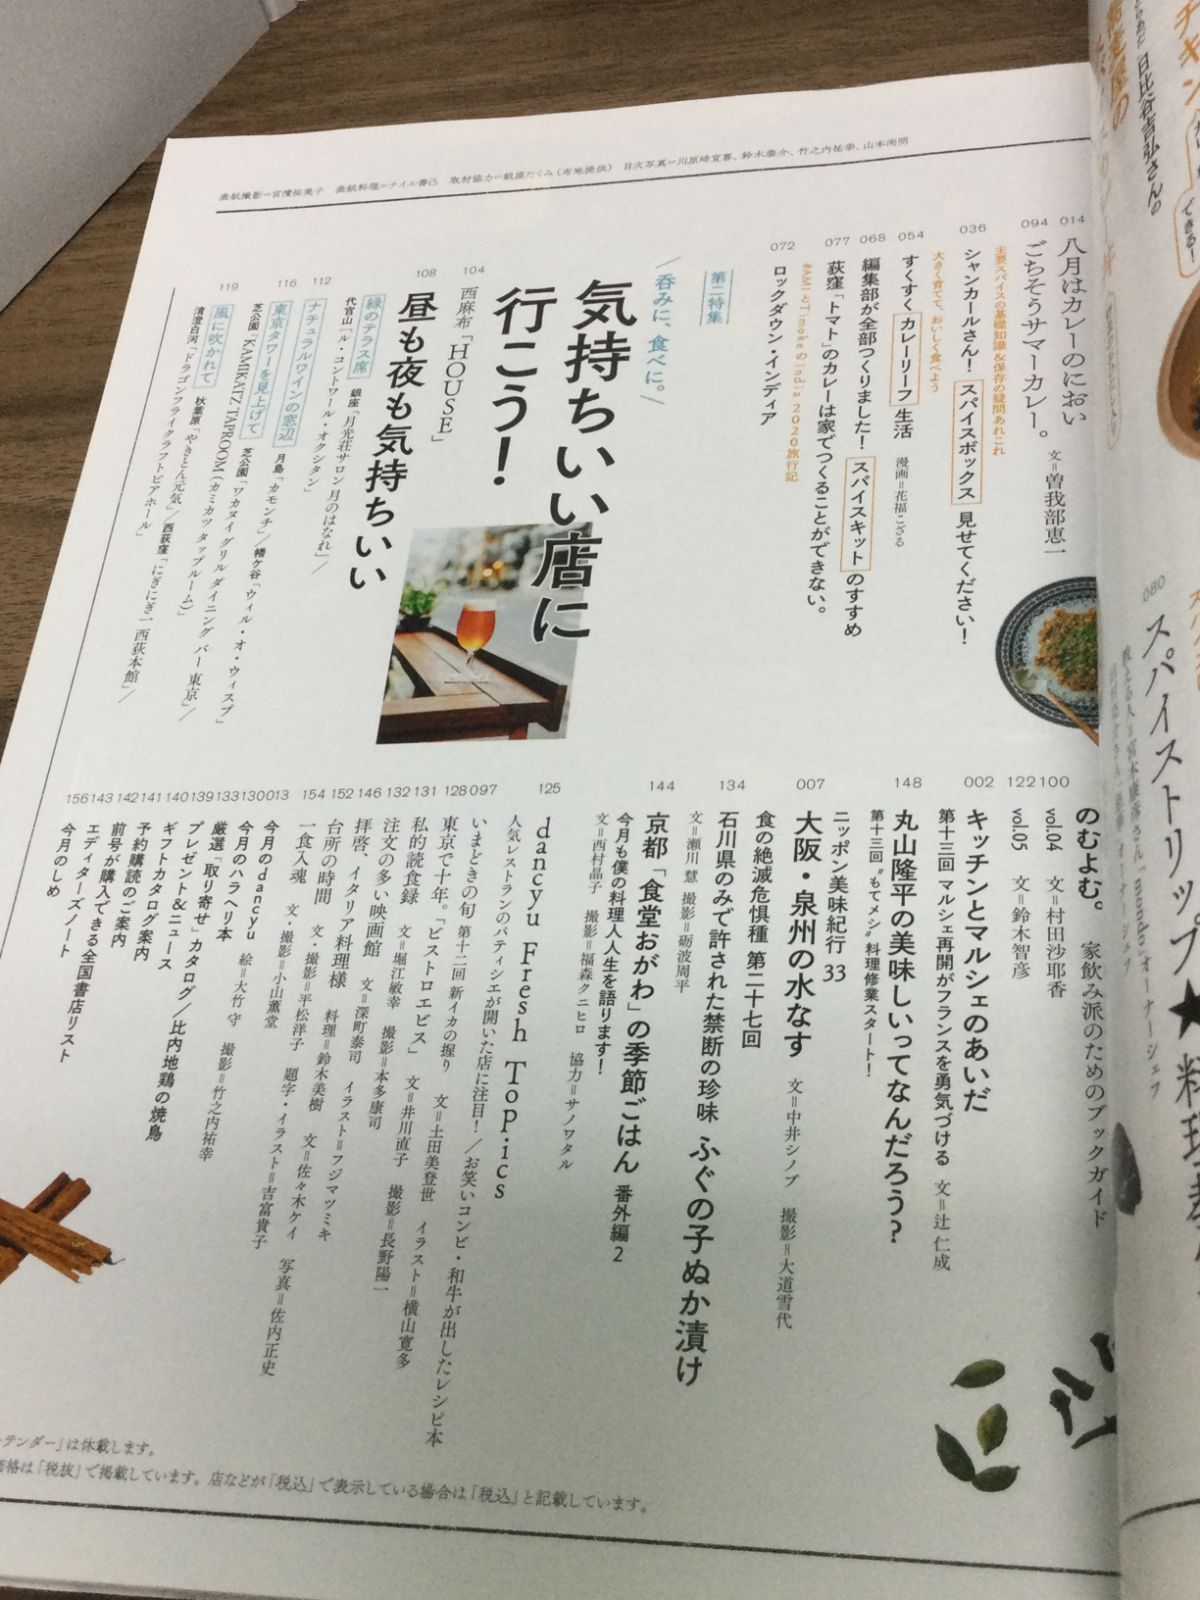 表紙撮影＝宮濱祐美子　表紙料理＝ナイル善己　取材協力＝銀座たくみ（布地提供）　目次写真＝川原﨑宣喜、鈴木泰介、竹之内祐幸、山本尚明
014
八月はカレーのにおい　文＝曽我部恵一
094
ごちそうサマーカレー。
主要スパイスの基礎知識＆保存の疑問あれこれ
036
シャンカールさん！ スパイスボックス 見せてください！
大きく育てて、おいしく食べよう
054
すくすく カレーリーフ 生活　漫画＝花福こざる
068
編集部が全部つくりました！ スパイスキット のすすめ
077
荻窪「トマト」のカレーは家でつくることができない。
#AMIとTimokeのindia 2020旅行記
072
ロックダウン・インディア
第二特集
＼呑みに、食べに。／
気持ちいい店に
行こう！
104
西麻布「HOUSE」
108
昼も夜も気持ちいい
緑のテラス席　銀座「月光荘サロン 月のはなれ」／
代官山「ル・コントワール・オクシタン」
112
ナチュラルワインの窓辺　月島「カモンチ」／幡ケ谷「ウィル・オ・ウィスプ」
116
東京タワーを見上げて　芝公園「ワカヌイ グリル ダイニング バー 東京」／
芝公園「KAMIKATZ TAPROOM（カミカツ タップルーム）」
119
風に吹かれて　秋葉原「やきとん元気」／西荻窪「にぎにぎ一 西荻本館」／
清澄白河「ドラゴンフライクラフトビアホール」
のむよむ。　家飲み派のためのブックガイド
100
vol.04　文＝村田沙耶香
122
vol.05　文＝鈴木智彦
002
キッチンとマルシェのあいだ
第十三回 マルシェ再開がフランスを勇気づける　文＝辻 仁成
148
丸山隆平の美味しいってなんだろう？
第十三回 “もてメシ” 料理修業スタート！
ニッポン美味紀行 33
007
大阪・泉州の水なす　文＝中井シノブ　撮影＝大道雪代
食の絶滅危惧種 第二十七回
134
石川県のみで許された禁断の珍味　ふぐの子ぬか漬け
文＝瀬川 慧　撮影＝砺波周平
144
京都「食堂おがわ」の季節ごはん 番外編2
今月も僕の料理人人生を語ります！
文＝西村晶子　撮影＝福森クニヒロ　協力＝サノワタル
125
dancyu Fresh Topics
人気レストランのパティシエが開いた店に注目！／お笑いコンビ・和牛が出したレシピ本
097
いまどきの旬 第十二回 新イカの握り　文＝土田美登世　イラスト＝横山寛多
128
東京で十年。「ビストロエビス」　文＝井川直子　撮影＝長野陽一
131
私的読食録　文＝堀江敏幸　撮影＝本多康司
132
注文の多い映画館　文＝深町泰司　イラスト＝フジマツミキ
146
拝啓、イタリア料理様　料理＝鈴木美樹　文＝佐々木ケイ　写真＝佐内正史
152
台所の時間　文・撮影＝平松洋子　題字・イラスト＝吉富貴子
154
一食入魂　文・撮影＝小山薫堂
013
今月のdancyu　絵＝大竹 守　撮影＝竹之内祐幸
130
今月のハラヘリ本
133
厳選「取り寄せ」カタログ／比内地鶏の焼鳥
139
プレゼント＆ニュース
140
ギフトカタログ案内
141
予約購読のご案内
142
前号が購入できる全国書店リスト
143
エディターズノート
156
今月のしめ
テンダー」は休載します。
価格は「税抜」で掲載しています。店などが「税込」で表示している場合は「税込」と記載しています。
日比谷吉弘さんの
できる！
080
スパイストリップ★料理教